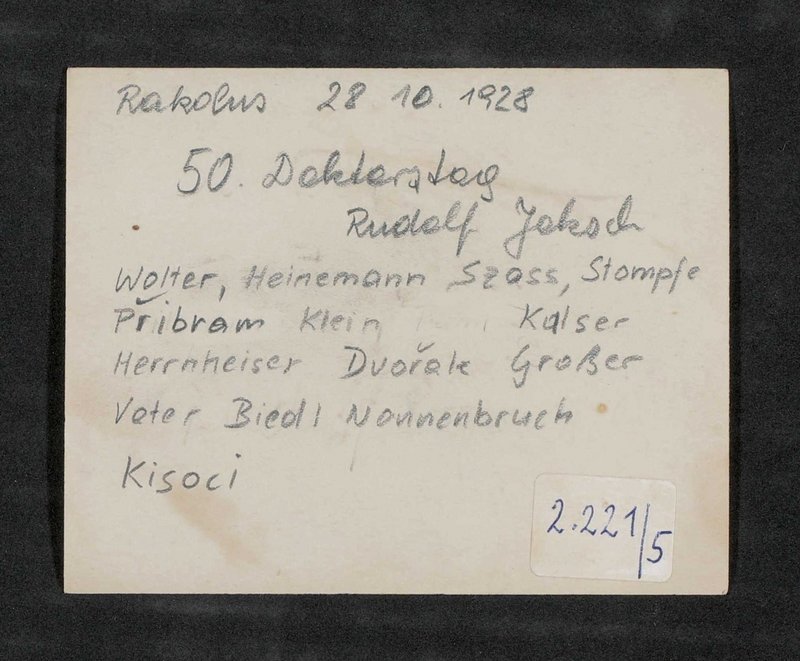 Rakolus 28 10. 1928
50. Doktorstag
Rudolf Jaksch
Wolter, Heinemann Szass, Stompfe
Přibram Klein Kalser
Herrnheiser Dvořak Großer
Vater Biedl Nonnenbruch
Kisoci
2.221/5